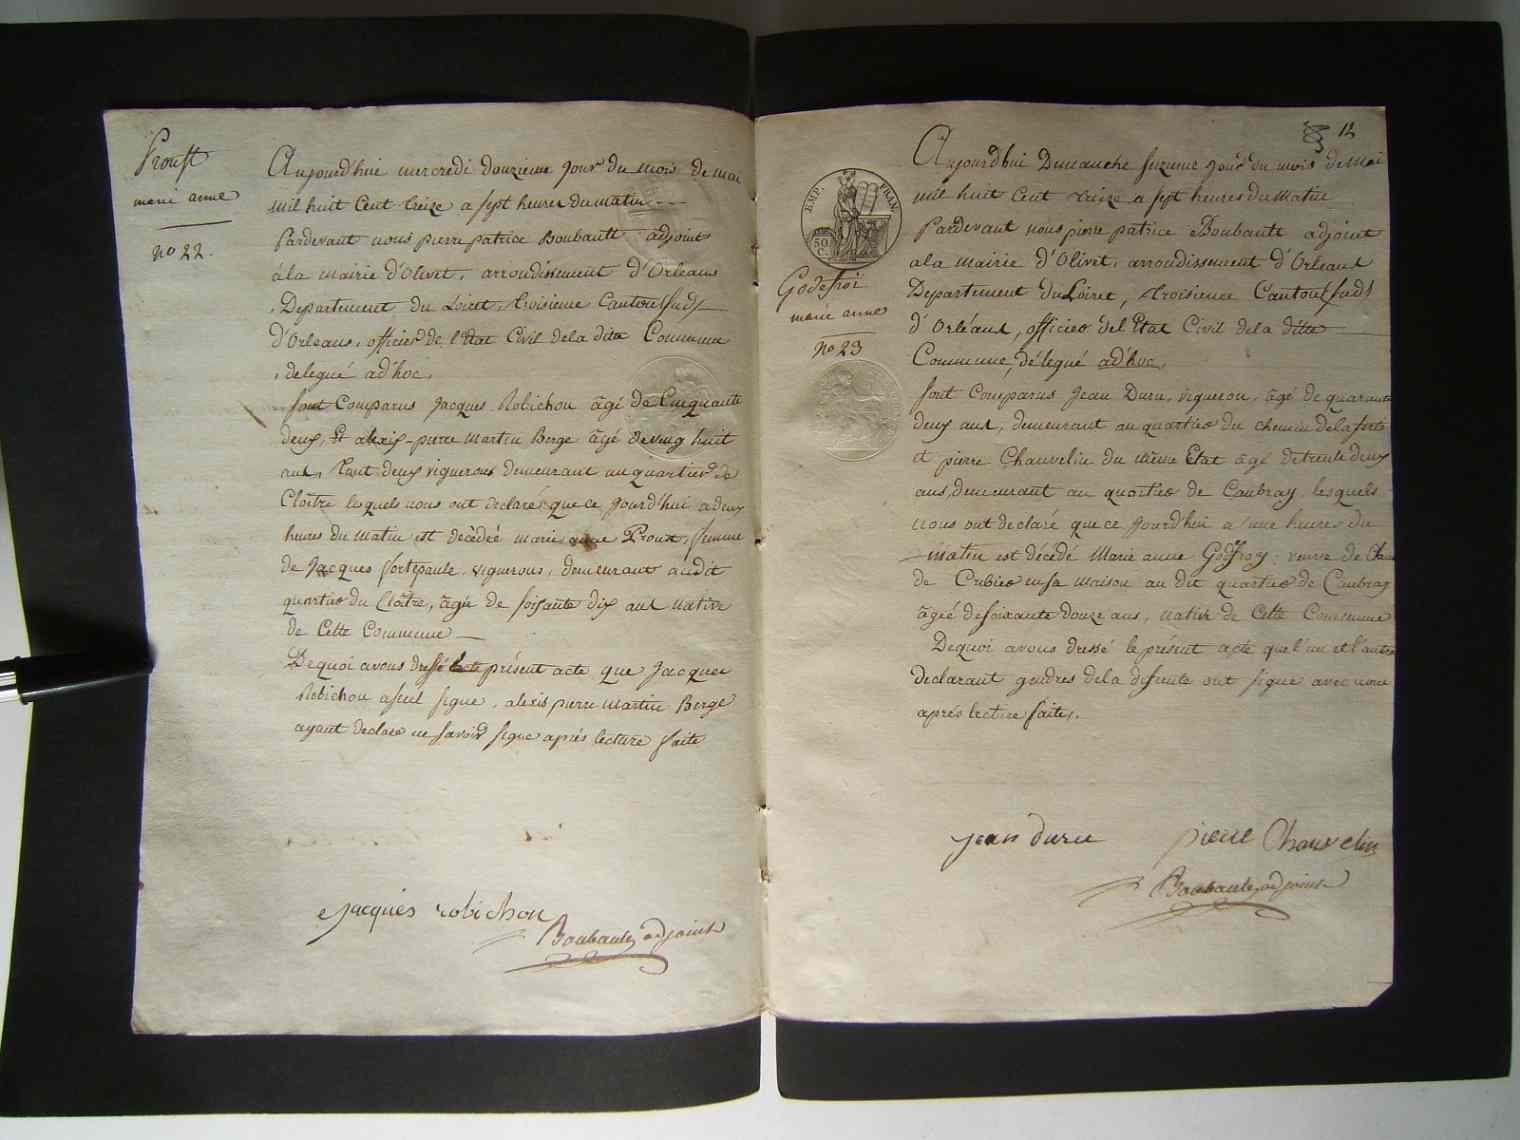 Proust
marie anne
no 22.
Aujourd'hui mercredi douzieme jour du mois de mai
mil huit Cent treize a sept heures du matin
Pardevant nous pierre patrice Boubault adjoint
á la mairie d'Olivet, arrondissement d'Orleans
Departement du Loiret, troisieme Canton sud
d'Orleans, officier de l'Etat Civil de la dite Commune
delegué ad'hoc,
sont Comparus Jacques Robichon âgé de Cinquante
deux, Et alexis pierre Martin Berge âgé de ving huit
ans, tout deux vignerons demeurant au quartier de
Cloître lesquels nous ont declaré que ce jourd'hui a deux
heures du Matin est décédée marie anne Proux, femme
de Jacques fortépaule, vignerons, demeurant audit
quartier du Cloître, âgée de soixante dix ans native
de Cette Commune
De quoi avons dressé le présent acte que Jacques
Robichon a seul signé, alexis pierre Martin Berge
ayant declaré ne savoir signé aprés lecture faite
Jacques robichon
Boubault, adjoint
12
EMP. FRAN.
50 C.
Godefroi
marie anne
no 23
Aujourd'hui Dimanche seizieme jour du mois de Mai
mil huit Cent treize a sept heures du Matin
Pardevant nous pierre patrice Boubault adjoint
a la Mairie d'Olivet, arrondissement d'Orleans
Departement du Loiret, troisieme Canton sud
d'Orléans, officier del'Etat Civil de la ditte
Commune, délegué ad'hoc,
sont Comparus Jean Duru, vigneron, âgé de quarante
deux ans, demeurant au quartier du chemin de la ferté
et pierre Chauvelin du même Etat âgé de trente deux
ans, demeurant au quartier de Caubray, lesquels
nous ont declaré que ce jourd'hui a une heure du
Matin est décédé Marie anne Godefroy, veuve de
de Cubier en sa maison au dit quartier de Caubray
âgée de soixante douze ans, native de Cette Commune
De quoi avons dressé le présent acte que l'un et l'autre
declarant gendres de la defunte ont signé avec nous
aprés lecture faite.
jean duru pierre Chauvelin
Boubault, adjoint